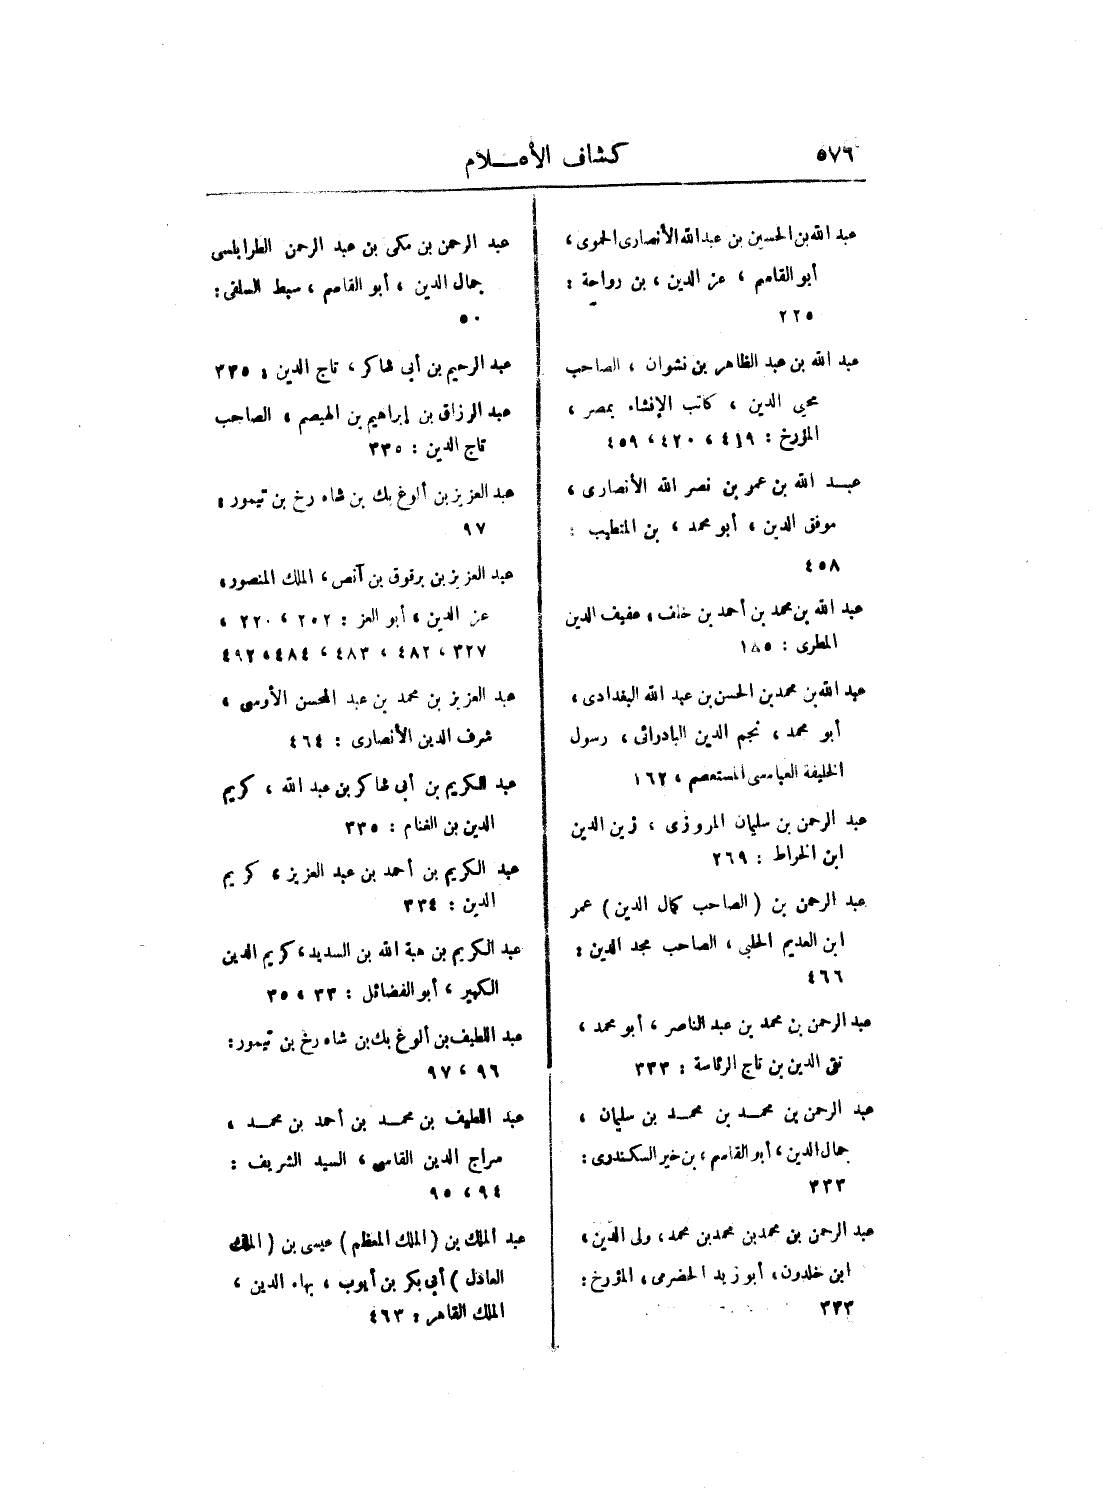 ٥٧٦
كشاف الأعلام
عبد الله بن الحسين بن عبد الله الأنصارى الحموى ،
أبو القاسم ، عز الدين ، بن رواحة :
٢٢٥
عبد الله بن عبد الظاهر بن نشوان ، الصاحب
محيي الدين ، كاتب الإنشاء بمصر ،
المؤرخ : ٤١٩ ، ٤٢٠ ، ٤٥٩
عبد الله بن عمر بن نصر الله الأنصارى ،
موفق الدين ، أبو محمد ، بن المتطيب :
٤٥٨
عبد الله بن محمد بن أحمد بن خلف ، عفيف الدين
المطرى : ١٨٥
عبد الله بن محمد بن الحسن بن عبد الله البغدادى ،
أبو محمد ، نجم الدين البادرائى ، رسول
الخليفة العباسى المستعصم ، ١٦٢
عبد الرحمن بن سليمان المروزى ، زين الدين
ابن الخراط : ٢٦٩
عبد الرحمن بن ( الصاحب كمال الدين ) عمر
ابن العديم الحلبي ، الصاحب مجد الدين :
٤٦٦
عبد الرحمن بن محمد بن عبد الناصر ، أبو محمد ،
تقى الدين بن تاج الرئاسة : ٣٣٣
عبد الرحمن بن محمد بن محمد بن سليمان ،
جمال الدين ، أبو القاسم ، بن خير السكندرى :
٣٣٣
عبد الرحمن بن محمد بن محمد بن محمد ، ولى الدين ،
ابن خلدون ، أبو زيد الحضرمى ، المؤرخ :
٣٣٣
عبد الرحمن بن مكى بن عبد الرحمن الطرابلسى
جمال الدين ، أبو القاسم ، سبط السلفى :
٥٠
عبد الرحيم بن أبي شاكر ، تاج الدين : ٣٣٥
عبد الرزاق بن إبراهيم بن الهيصم ، الصاحب
تاج الدين : ٣٣٥
عبد العزيز بن ألوغ بك بن شاه رخ بن تيمور :
٩٧
عبد العزيز بن برقوق بن آنص ، الملك المنصور ،
عز الدين ، أبو العز : ٢٠٢ ، ٢٢٠ ،
٣٢٧ ، ٤٨٢ ، ٤٨٣ ، ٤٨٤ ، ٤٩٢
عبد العزيز بن محمد بن عبد المحسن الأوسى ،
شرف الدين الأنصارى : ٤٦٤
عبد الكريم بن أبي شاكر بن عبد الله ، كريم
الدين بن الغنام : ٣٣٥
عبد الكريم بن أحمد بن عبد العزيز ، كريم
الدين : ٣٣٤
عبد الكريم بن هبة الله بن السديد ، كريم الدين
الكبير ، أبو الفضائل : ٣٣ ، ٣٥
عبد اللطيف بن ألوغ بك بن شاه رخ بن تيمور :
٩٦ ، ٩٧
عبد اللطيف بن محمد بن أحمد بن محمد ،
سراج الدين الفاسى ، السيد الشريف :
٩٤ ، ٩٥
عبد الملك بن ( الملك المعظم ) عيسى بن ( الملك
العادل ) أبي بكر بن أيوب ، بهاء الدين ،
الملك القاهر : ٤٦٣